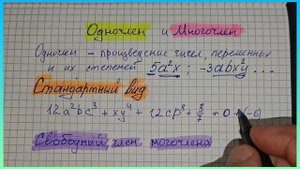 Одночлен и Многочлен
Одночлен – произведение чисел, переменных
и их степеней 5a²x; -3abx²y ...
Стандартный вид
12a²bc³ + xy⁴ + 12cp⁸ + 3/7 + 0 + (-6)
Свободный член могочлена